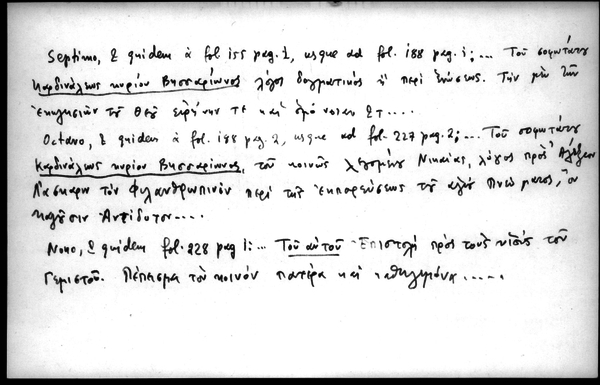 Septimo, & quidem à fol 155 pag. 1, usque ad fol. 188 pag. 1; ... Τοῦ σοφωτάτου
Καρδινάλεως κυρίου Βησσαρίωνος λόγος δογματικὸς ἢ περὶ ἑνώσεως. Τὴν μὲν τῶν
ἐκκλησιῶν τοῦ Θεοῦ εἰρήνην τε καὶ ὁμόνοιαν ....
Octavo, & quidem à fol. 188 pag. 2, usque ad fol. 227 pag. 2; ... Τοῦ σοφωτάτου
Καρδινάλεως κυρίου Βησσαρίωνος, τοῦ κοινῶς λεγομένου Νικαίας, λόγος πρὸς Ἀλέξιον
Λάσκαριν τὸν Φιλανθρωπινὸν περὶ τῆς ἐκπορεύσεως τοῦ ἁγίου Πνεύματος, ὃν
καλοῦσιν Ἀντίδοτον....
Nono, & quidem fol. 228 pag 1: ... Τοῦ αὐτοῦ Ἐπιστολὴ πρὸς τοὺς υἱοὺς τοῦ
Γεμιστοῦ. Πέπυσμαι τὸν κοινὸν πατέρα καὶ καθηγεμόνα.....